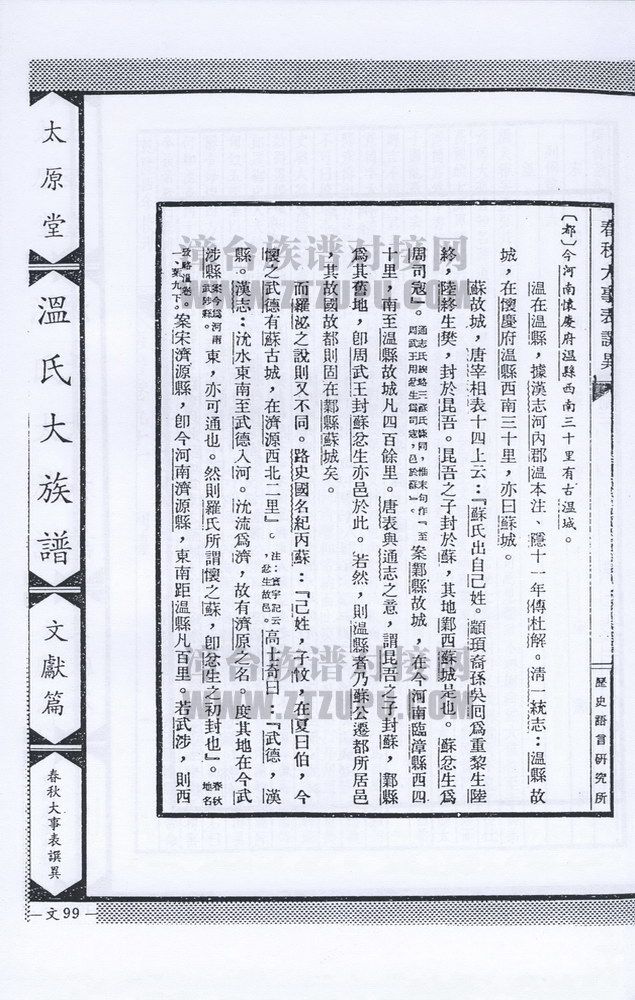 春秋大事表譔異
歷史語言研究所
〔都〕今河南懷慶府溫縣西南三十里有古溫城。
溫在溫縣，據漢志河內郡溫本注、隱十一年傳杜解。清一統志：溫縣故
城，在懷慶府溫縣西南三十里，亦曰蘇城。
蘇故城，唐宰相表十四上云：『蘇氏出自己姓。顓頊裔孫吳回爲重黎生陸
終，陸終生樊，封於昆吾。昆吾之子封於蘇，其地鄴西蘇城是也。蘇忿生爲
周司寇』。通志氏族略三蘇氏條同，惟末句作『至周武王用忿生爲司寇，邑於蘇』。案鄴縣故城，在今河南臨漳縣西四
十里，南至溫縣故城凡四百餘里。唐表與通志之意，謂昆吾之子封蘇，鄴縣
爲其舊地，卽周武王封蘇忿生亦邑於此。若然，則溫縣者乃蘇公遷都所居邑
，其故國故都則固在鄴縣蘇城矣。
而羅泌之說則又不同。路史國名紀丙蘇：『己姓，子忟，在夏曰伯，今
懷之武德有蘇古城，在濟源西北二里』。注：寰宇記云，忿生故邑。高士奇曰：『武德，漢
縣。漢志：沇水東南至武德入河。沇流爲濟，故有濟源之名。度其地在今武
涉縣案今爲河南武陟縣。東，亦可通也。然則羅氏所謂懷之蘇，卽忿生之初封也』。春秋地名
攷略溫卷一、葉九下。案宋濟源縣，卽今河南濟源縣，東南距溫縣凡百里。若武涉，則西
太原堂
溫氏大族譜
文獻篇
春秋大事表譔異
文99
漳台族谱对接网
WWW.ZTZUPU.COM
漳台族谱对接网
WWW.ZTZUPU.COM